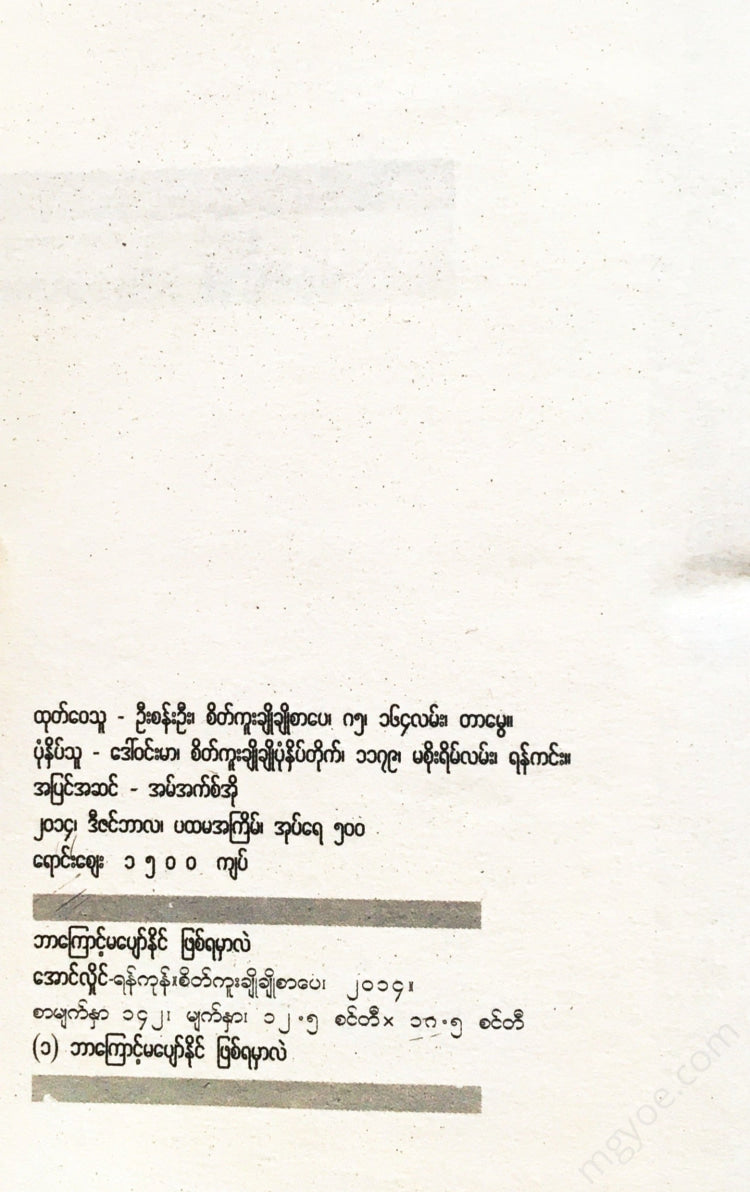 ထုတ်ဝေသူ - ဦးစန်းဦး၊ စိတ်ကူးချိုချိုစာပေ၊ ဂ၅၊ ၁၆၄လမ်း၊ တာမွေ။
ပုံနှိပ်သူ - ဒေါ်ဝင်းမာ၊ စိတ်ကူးချိုချိုပုံနှိပ်တိုက်၊ ၁၁၇၉၊ မစိုးရိမ်လမ်း၊ ရန်ကင်း။
အပြင်အဆင် - အမ်အက်စ်အို
၂၀၁၄၊ ဒီဇင်ဘာလ၊ ပထမအကြိမ်၊ အုပ်ရေ ၅၀၀
ရောင်းဈေး ၁ ၅ ၀ ၀ ကျပ်
ဘာကြောင့်မပျော်နိုင် ဖြစ်ရမှာလဲ
အောင်လှိုင်-ရန်ကုန်။စိတ်ကူးချိုချိုစာပေ၊ ၂၀၁၄။
စာမျက်နှာ ၁၄၂၊ မျက်နှာ၊ ၁၂.၅ စင်တီ× ၁၈.၅ စင်တီ
(၁) ဘာကြောင့်မပျော်နိုင် ဖြစ်ရမှာလဲ
mgyoe.com